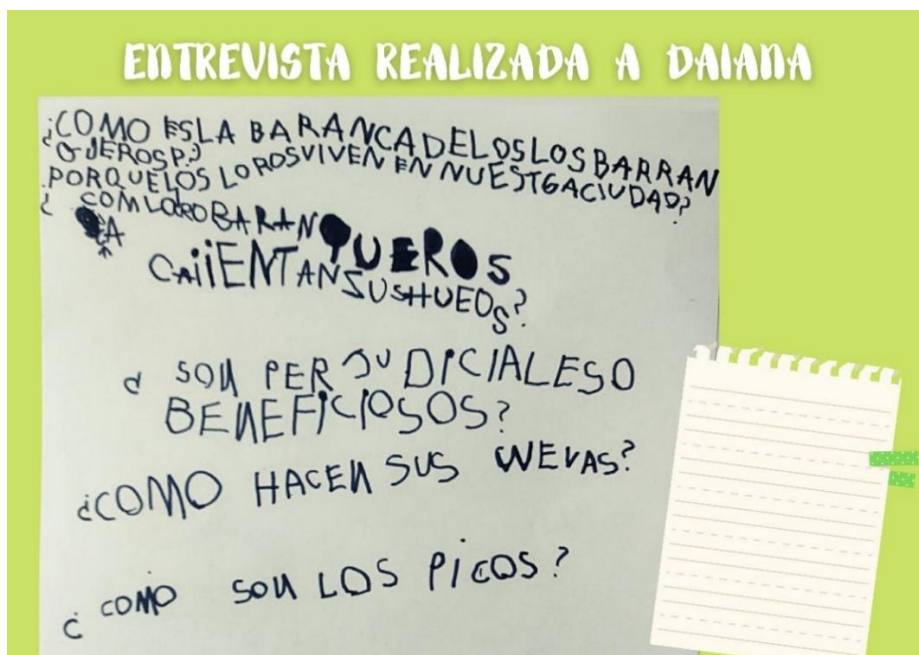 ENTREVISTA REALIZADA A DAIANA
¿COMO ES LA BARANCA DE LOS LOS BARRAN
QUEROS P.?
PORQUE LOS LOROS VIVEN EN NUESTGA CIUDAD?
¿ COM LORO BARAN QUEROS
LA
CAIIENTAN SUS HUEOS?
¿ SON PERJUDICIALES O
BENEFICIOSOS?
¿COMO HACEN SUS WEVAS?
¿ COMO SON LOS PICOS?